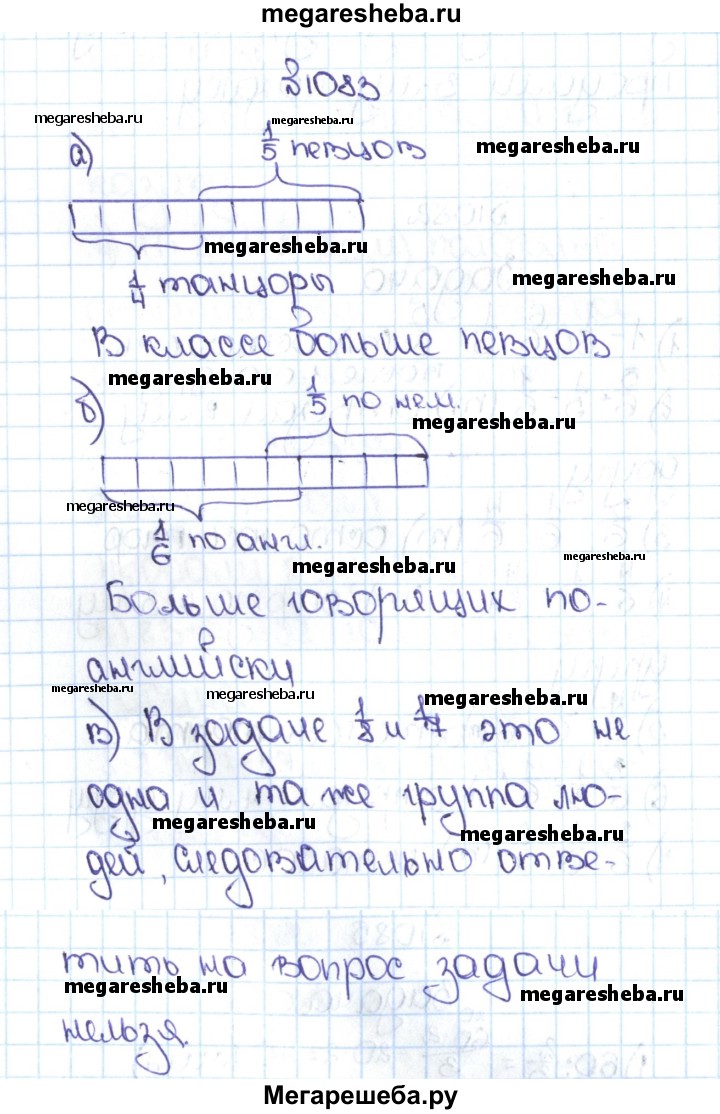 megaresheba.ru
№1083
megaresheba.ru
megaresheba.ru
а) 1/5 певцов megaresheba.ru
megaresheba.ru
1/4 танцоры megaresheba.ru
В классе больше певцов
megaresheba.ru
б) 1/5 по нем.
megaresheba.ru
megaresheba.ru
1/6 по англ.
megaresheba.ru megaresheba.ru
Больше говорящих по-
английски
megaresheba.ru megaresheba.ru megaresheba.ru
в) В задаче 1/8 и 1/7 это не
одна и та же группа лю-
megaresheba.ru megaresheba.ru
дей, следовательно отве-
тить на вопрос задачи
megaresheba.ru megaresheba.ru
нельзя.
Мегарешеба.ру